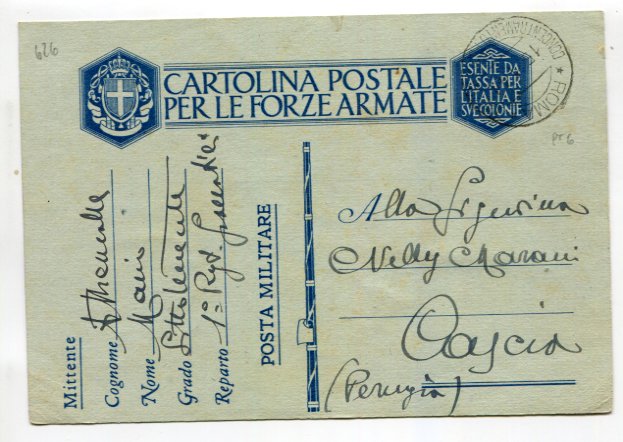 626
CARTOLINA POSTALE
PER LE FORZE ARMATE
ESENTE DA
TASSA PER
L'ITALIA E
SVE COLONIE
CONCENTRAMENTO
ROM
PT 6
Alla Signorina
Nelly Marani
Cascia
(Perugia)
POSTA MILITARE
Mittente
Cognome
Nome Mario
Grado Sottotenente
Reparto 1° Regt. Granatieri